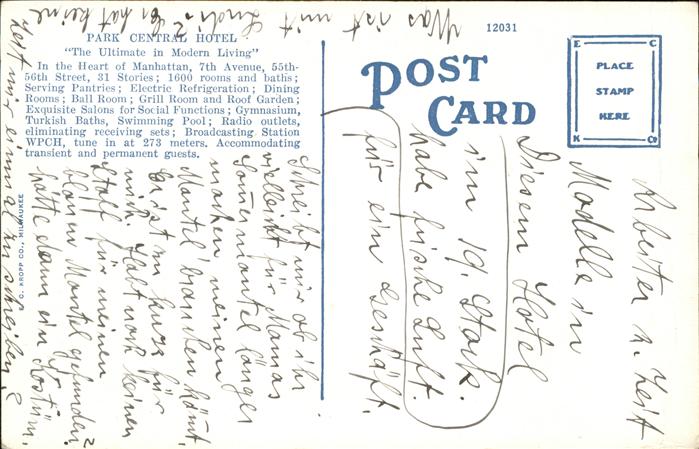 PARK CENTRAL HOTEL
"The Ultimate in Modern Living"
In the Heart of Manhattan, 7th Avenue, 55th-
56th Street, 31 Stories; 1600 rooms and baths;
Serving Pantries; Electric Refrigeration; Dining
Rooms; Ball Room; Grill Room and Roof Garden;
Exquisite Salons for Social Functions; Gymnasium,
Turkish Baths, Swimming Pool; Radio outlets,
eliminating receiving sets; Broadcasting Station
WPCH, tune in at 273 meters. Accommodating
transient and permanent guests.
C. KROPP CO., MILWAUKEE
12031
POST
CARD
E C
PLACE
STAMP
HERE
K Co
Arbeiten z. Zeit
Modelle in
Diesem Hotel
im 19. Stock.
habe frische Luft.
für ein Geschäft.
Schreibt mir ob ihr
vielleicht für Mamas
Sommermantel länger
machen meinen
Mantel brauchen könnt,
Er ist zu kurz für
mich. Habt noch keinen
Stoff für meinen
blauen Mantel gefunden?
hätte dann ein Kostüm.
Was ist mit
? Er hat keine
Zeit mir einmal zu schreiben?